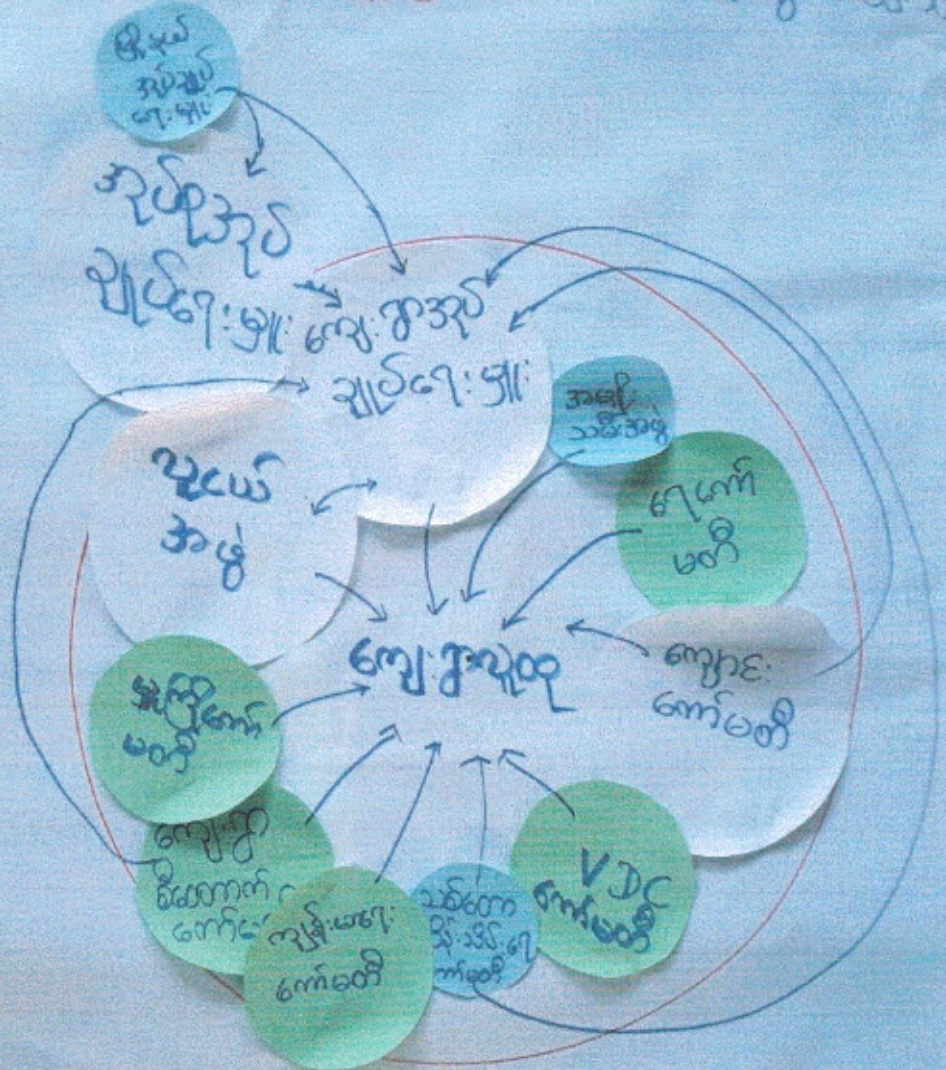 မြို့နယ်
အုပ်ချုပ်
ရေးမှူး
အုပ်စုအုပ်
ချုပ်ရေးမှူး
ကျေးရွာအုပ်
ချုပ်ရေးမှူး
အမျိုး
သမီးအဖွဲ့
လူငယ်
အဖွဲ့
ရေကော်
မတီ
ကျေးရွာလူထု
ကျောင်း
ကော်မတီ
ကော်
မတီ
ကျေးရွာ
ကျန်းမာရေး
ကော်မတီ
သစ်တော
ထိန်းသိမ်းရေး
ကော်မတီ
VDC
ကော်မတီ